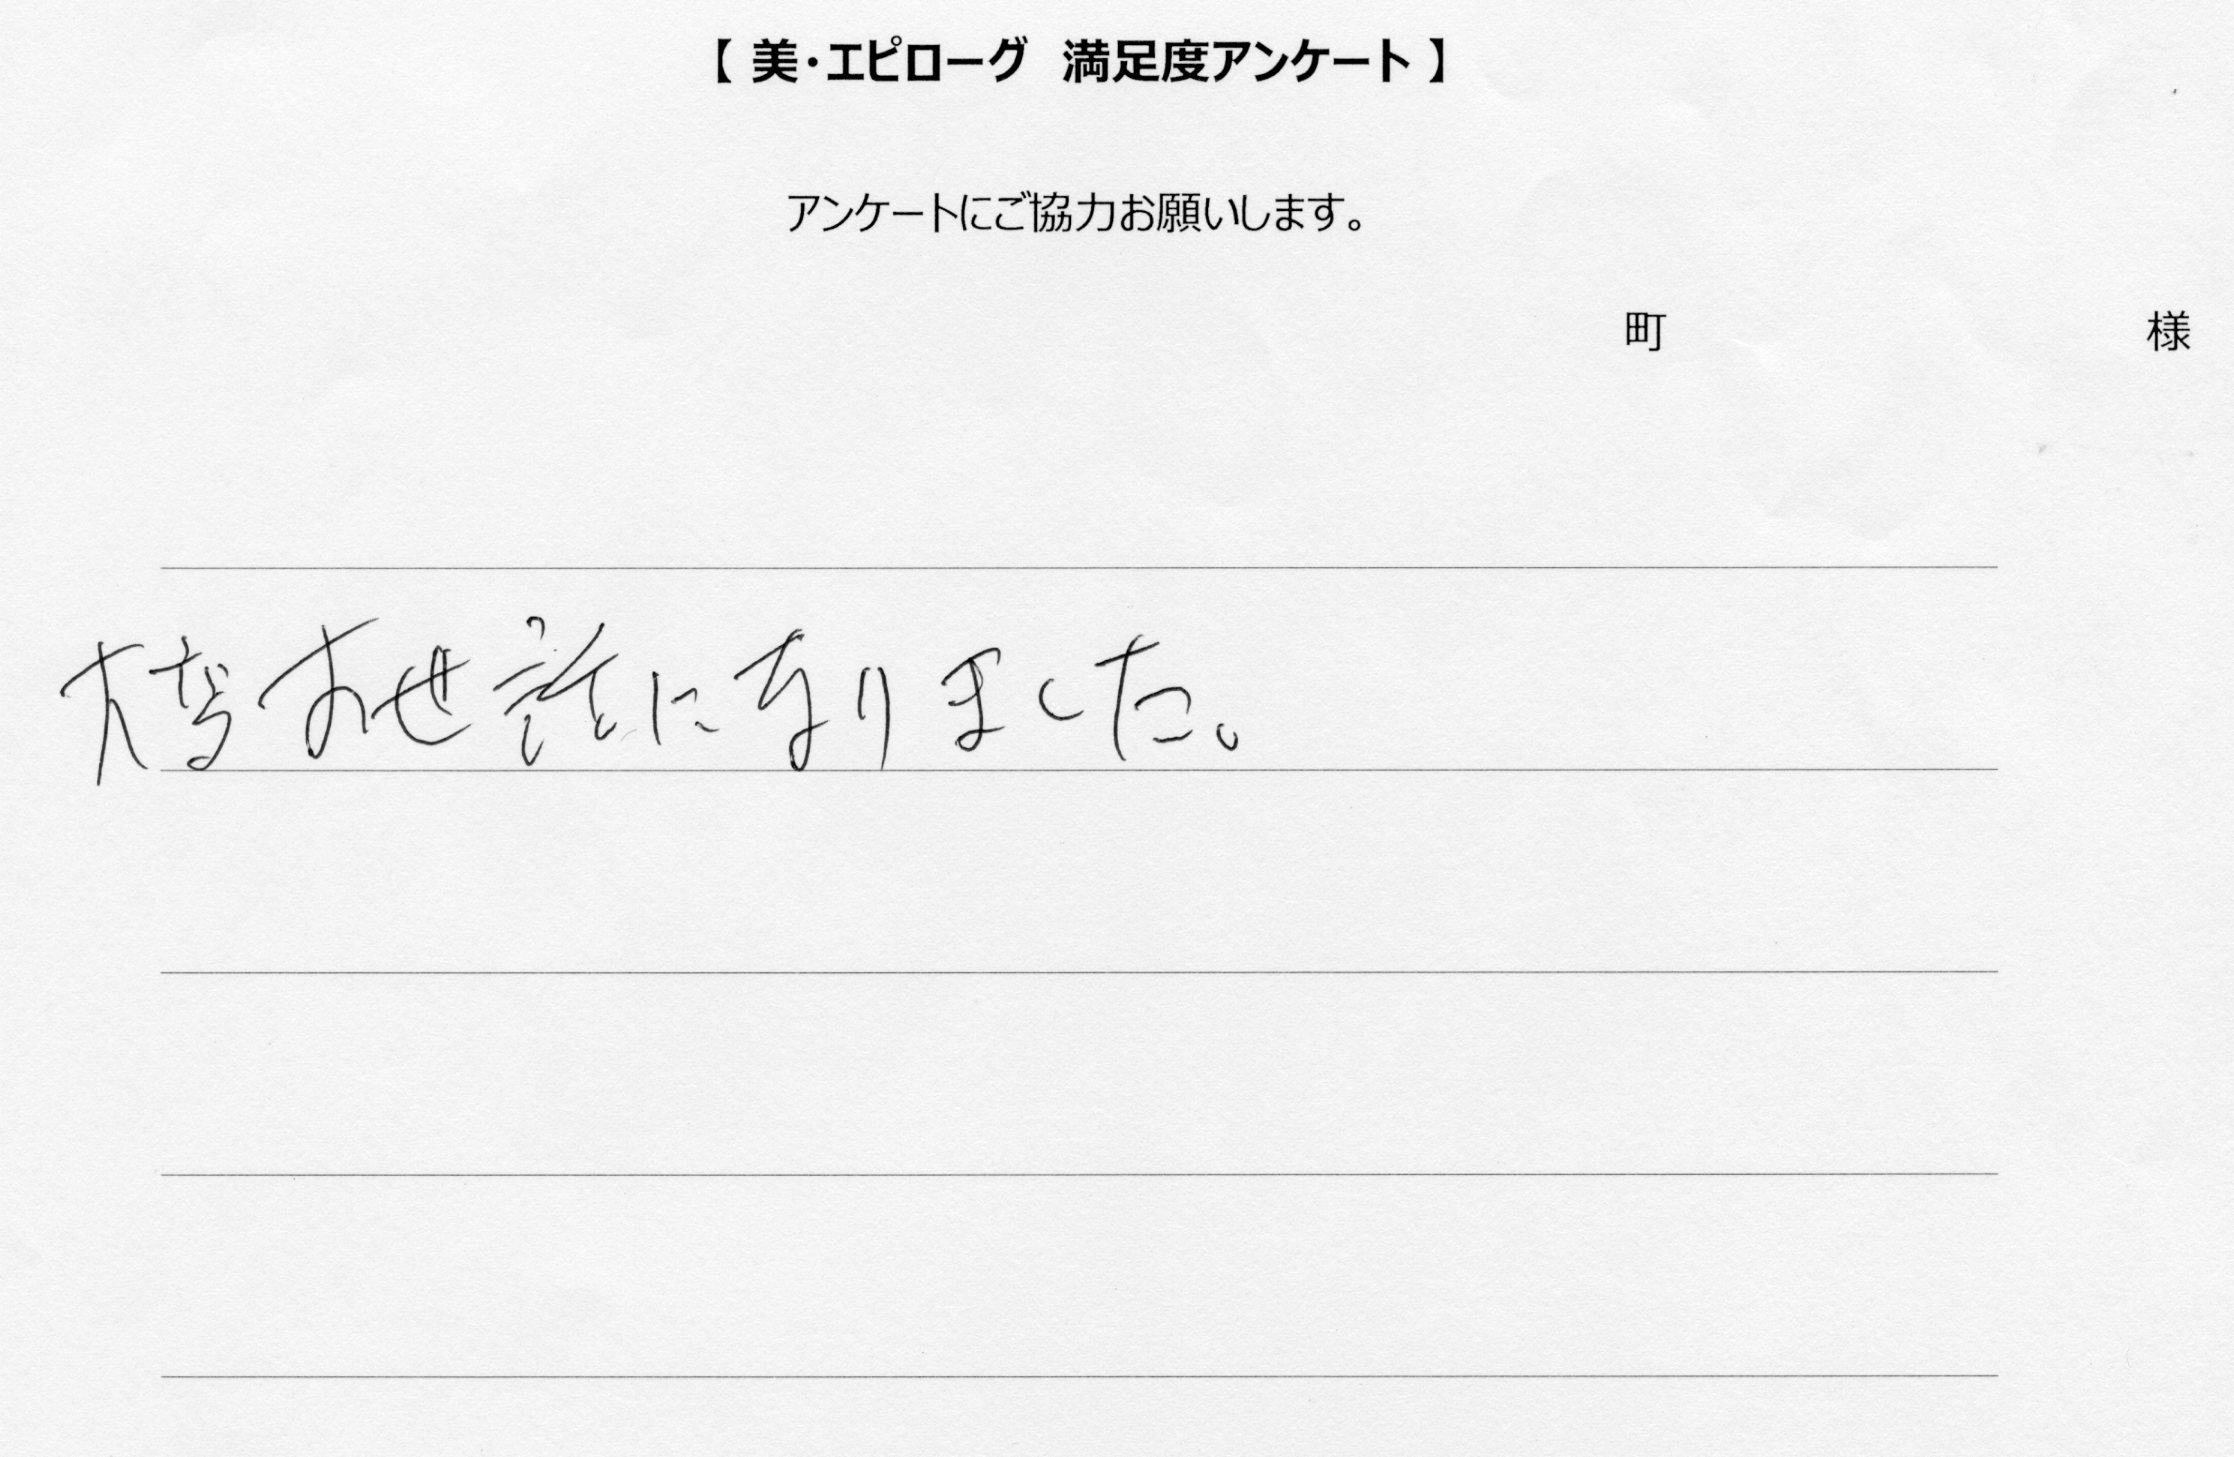 【 美・エピローグ 満足度アンケート 】
アンケートにご協力お願いします。
町 様
大変お世話になりました。